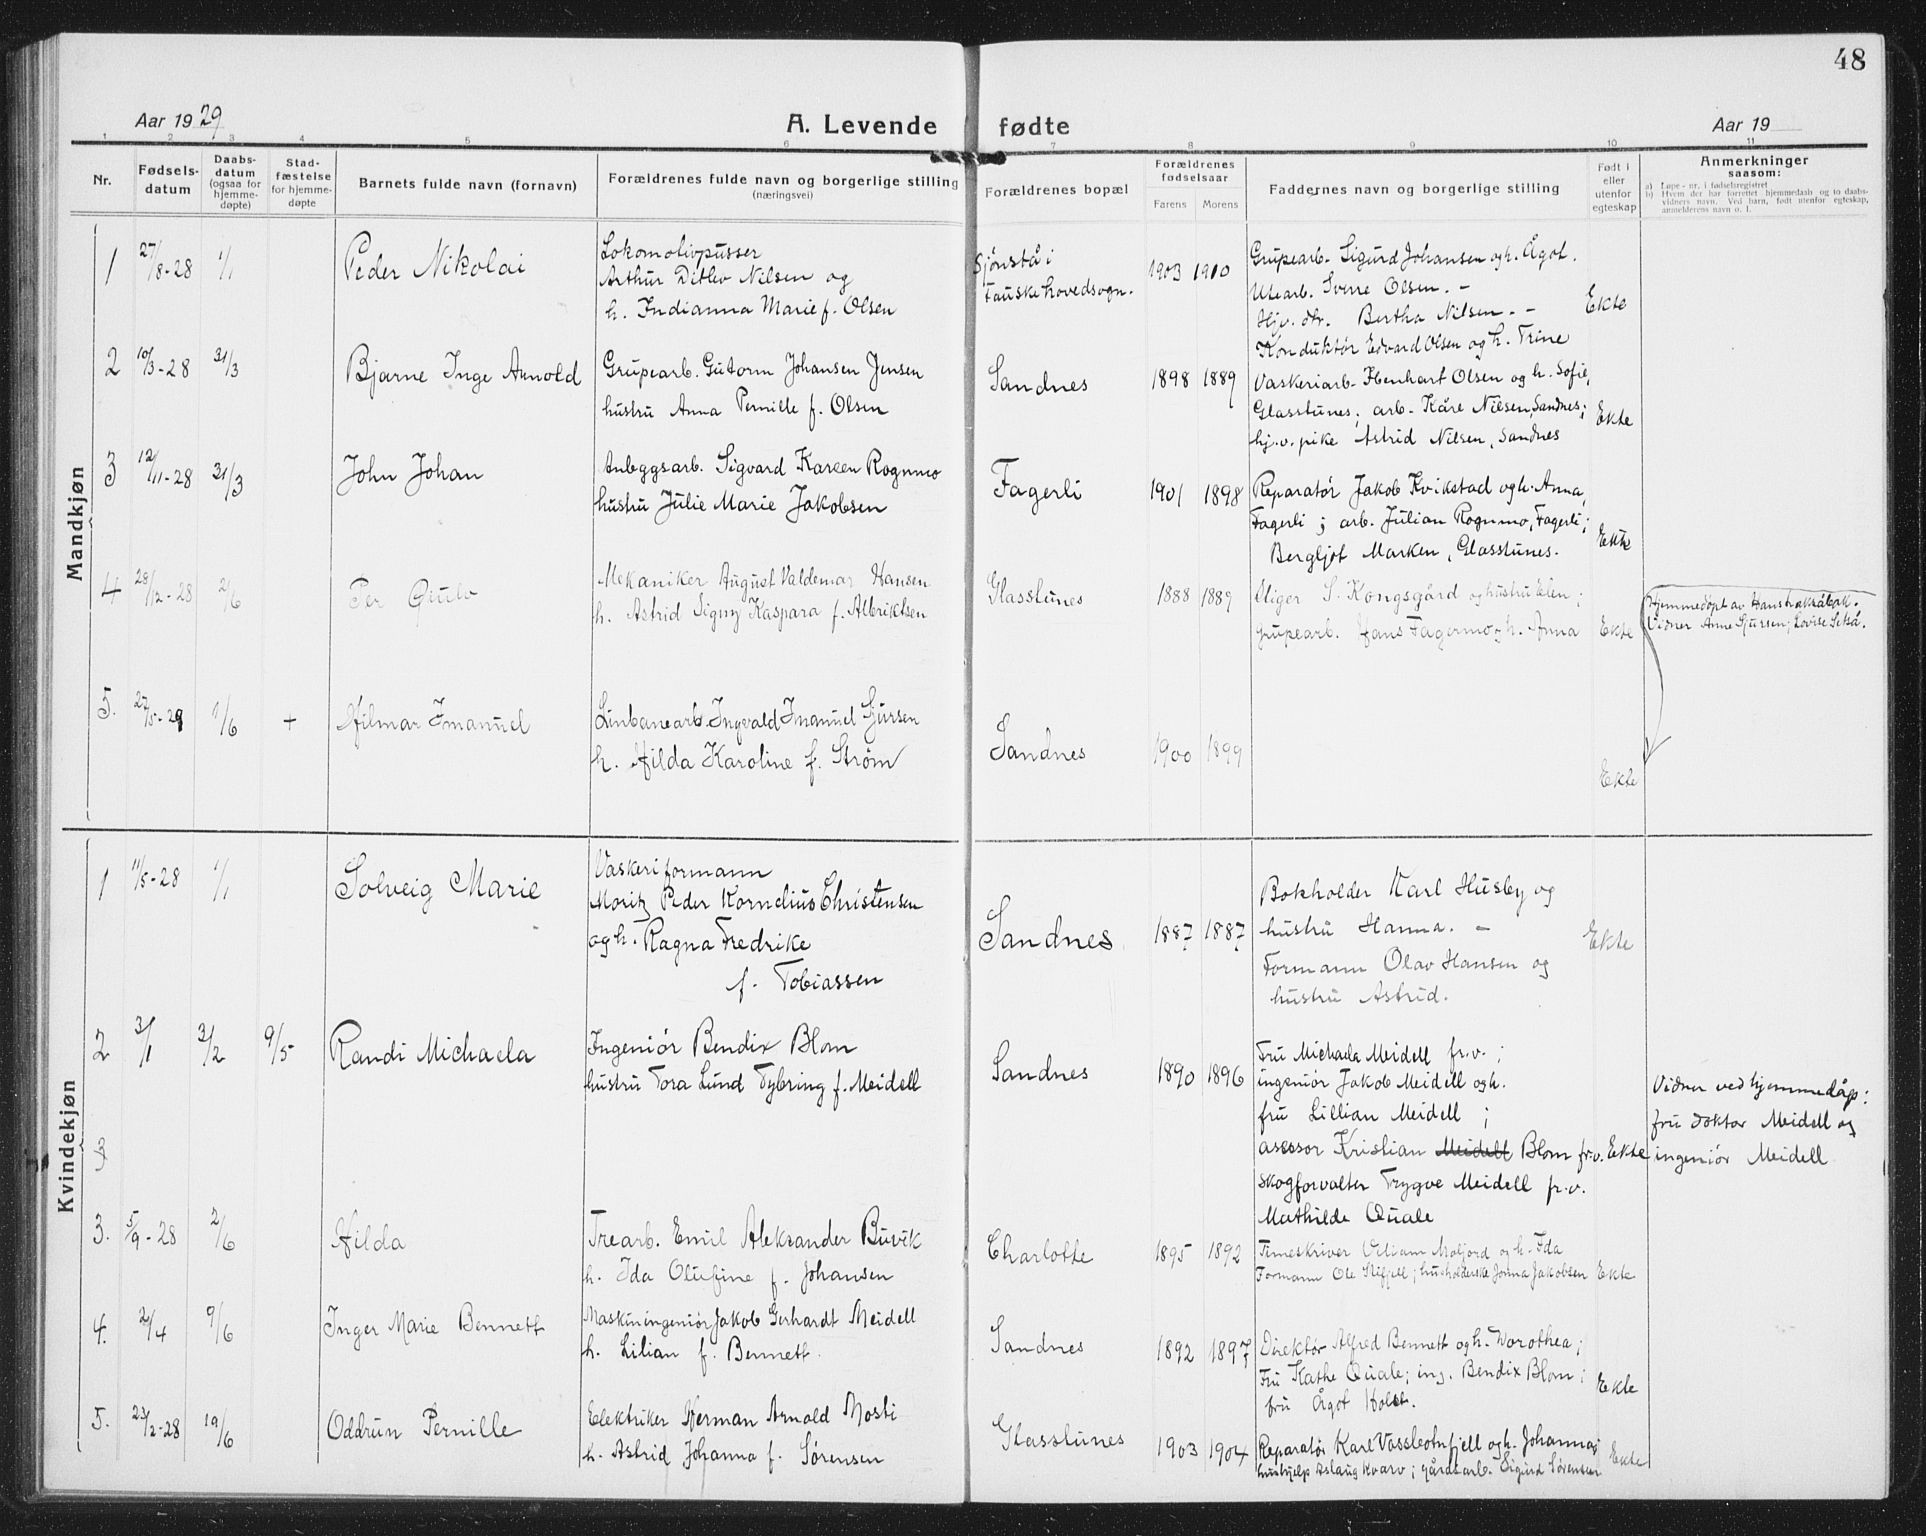 48
Aar 1929
A. Levende fødte
Aar 19
1 2 3 4 5 6 7 8 9 10 11
Nr.
Fødsels-
datum
Daabs-
datum
(ogsaa for
hjemme-
døpte)
Stad-
fæstelse
for hjemme-
døpte
Barnets fulde navn (fornavn)
Forældrenes fulde navn og borgerlige stilling
(næringsvei)
Forældrenes bopæl
Forældrenes
fødselsaar
Farens Morens
Faddernes navn og borgerlige stilling
Født i
eller
utenfor
egteskap
Anmerkninger
saasom:
a) Løpe-nr. i fødselsregistret
b) Hvem der har forrettet hjemmedaab og to daabs-
vidners navn. Ved barn, født utenfor egteskap,
anmelderens navn o. l.
Mandkjøn
1 27/8-28 1/1 Peder Nikolai
Lokomotivpusser
Arthur Ditlev Nilsen og
h. Indianna Marie f. Olsen
Sjønstå i
Fauske hovedsogn.
1903 1910
Grupearb. Sigurd Johansen og h. Ågot.
Utearb. Sverre Olsen. -
Hjv. dtr. Bertha Nilsen. -
Konduktør Edvard Olsen og h. Trine
Ekte
2 10/3-28 31/3 Bjarne Inge Arnold
Grupearb. Gutorm Johansen Jensen
hustru Anna Pernille f. Olsen
Sandnes 1898 1889
Vaskeriarb. Ebenhart Olsen og h. Sofie,
Glasstunes; arb. Kåre Nilsen, Sandnes;
hj.v. pike Astrid Nilsen, Sandnes
Ekte
3 12/11-28 31/3 John Johan
Anleggsarb. Sigvard Kareen Rognmo
hustru Julie Marie Jakobsen
Fagerli 1901 1898
Reparatør Jakob Kvikstad og h. Anna,
Fagerli; arb. Julian Rognmo, Fagerli;
Bergljot Marken, Glasstunes.
Ekte
4 28/12-28 2/6 Per
Mekaniker August Valdemar Hansen
h. Astrid Signy Kaspara f. Albriktsen
Glasstunes 1888 1889
Stiger S. Kongsgård og hustru Elen;
grupearb. Hans Fagermo og h. Anna
Ekte
Hjemmedøpt av
Vidner Anne Sjursen; Lovise Setså.
5. 27/5-29 1/6 + Hilmar Imanuel
Linbanearb. Ingvald Imanuel Sjursen
h. Hilda Karoline f. Strøm
Sandnes 1900 1899
Ekte
Kvindekjøn
1 11/5-28 1/1 Solveig Marie
Vaskeriformann
Moritz Peder Kornelius Christensen
og h. Ragna Fredrike
f. Tobiassen
Sandnes 1887 1887
Bokholder Karl Husby og
hustru Hanna. -
Formann Olav Hansen og
hustru Astrid.
Ekte
2 3/1 3/2 9/5 Randi Michaela
Ingeniør Bendix Blom
hustru Tora Lund Tybring f. Meidell
Sandnes 1890 1896
Fru Michaela Meidell fr.v.;
ingeniør Jakob Meidell og h.
fru Lillian Meidell;
asessor Kristian Meidell Blom fr.v.
skogforvalter Trygve Meidell fr.v.
Mathilde Quale
Ekte
Vidner ved hjemmedåp:
fru doktor Meidell og
ingeniør Meidell
3
3. 5/9-28 2/6 Hilda
Trearb. Emil Aleksander Buvik
h. Ida Olufine f. Johansen
Charlotte 1895 1892
Timeskriver Viliam Moljord og h. Ida
Formann Ole Stifjell; husholderske Jonna Jakobsen
Ekte
4. 2/4 9/6 Inger Marie Bennett
Maskiningeniør Jakob Gerhardt Meidell
h. Lilian f. Bennett.
Sandnes 1892 1897
Direktør Alfred Bennett og h. Dorothea;
Fru Kathe Quale; ing. Bendix Blom;
fru Ågot Holst.
Ekte
5. 23/2-28 19/6 Oddrun Pernille
Elektriker Herman Arnold Mosti
h. Astrid Johanna f. Sørensen
Glasstunes 1903 1904
Reparatør Karl Vassbotnfjell og h. Johanna;
hushjelp Aslaug Kvarv; gårdsarb. Sigurd Sørensen
Ekte